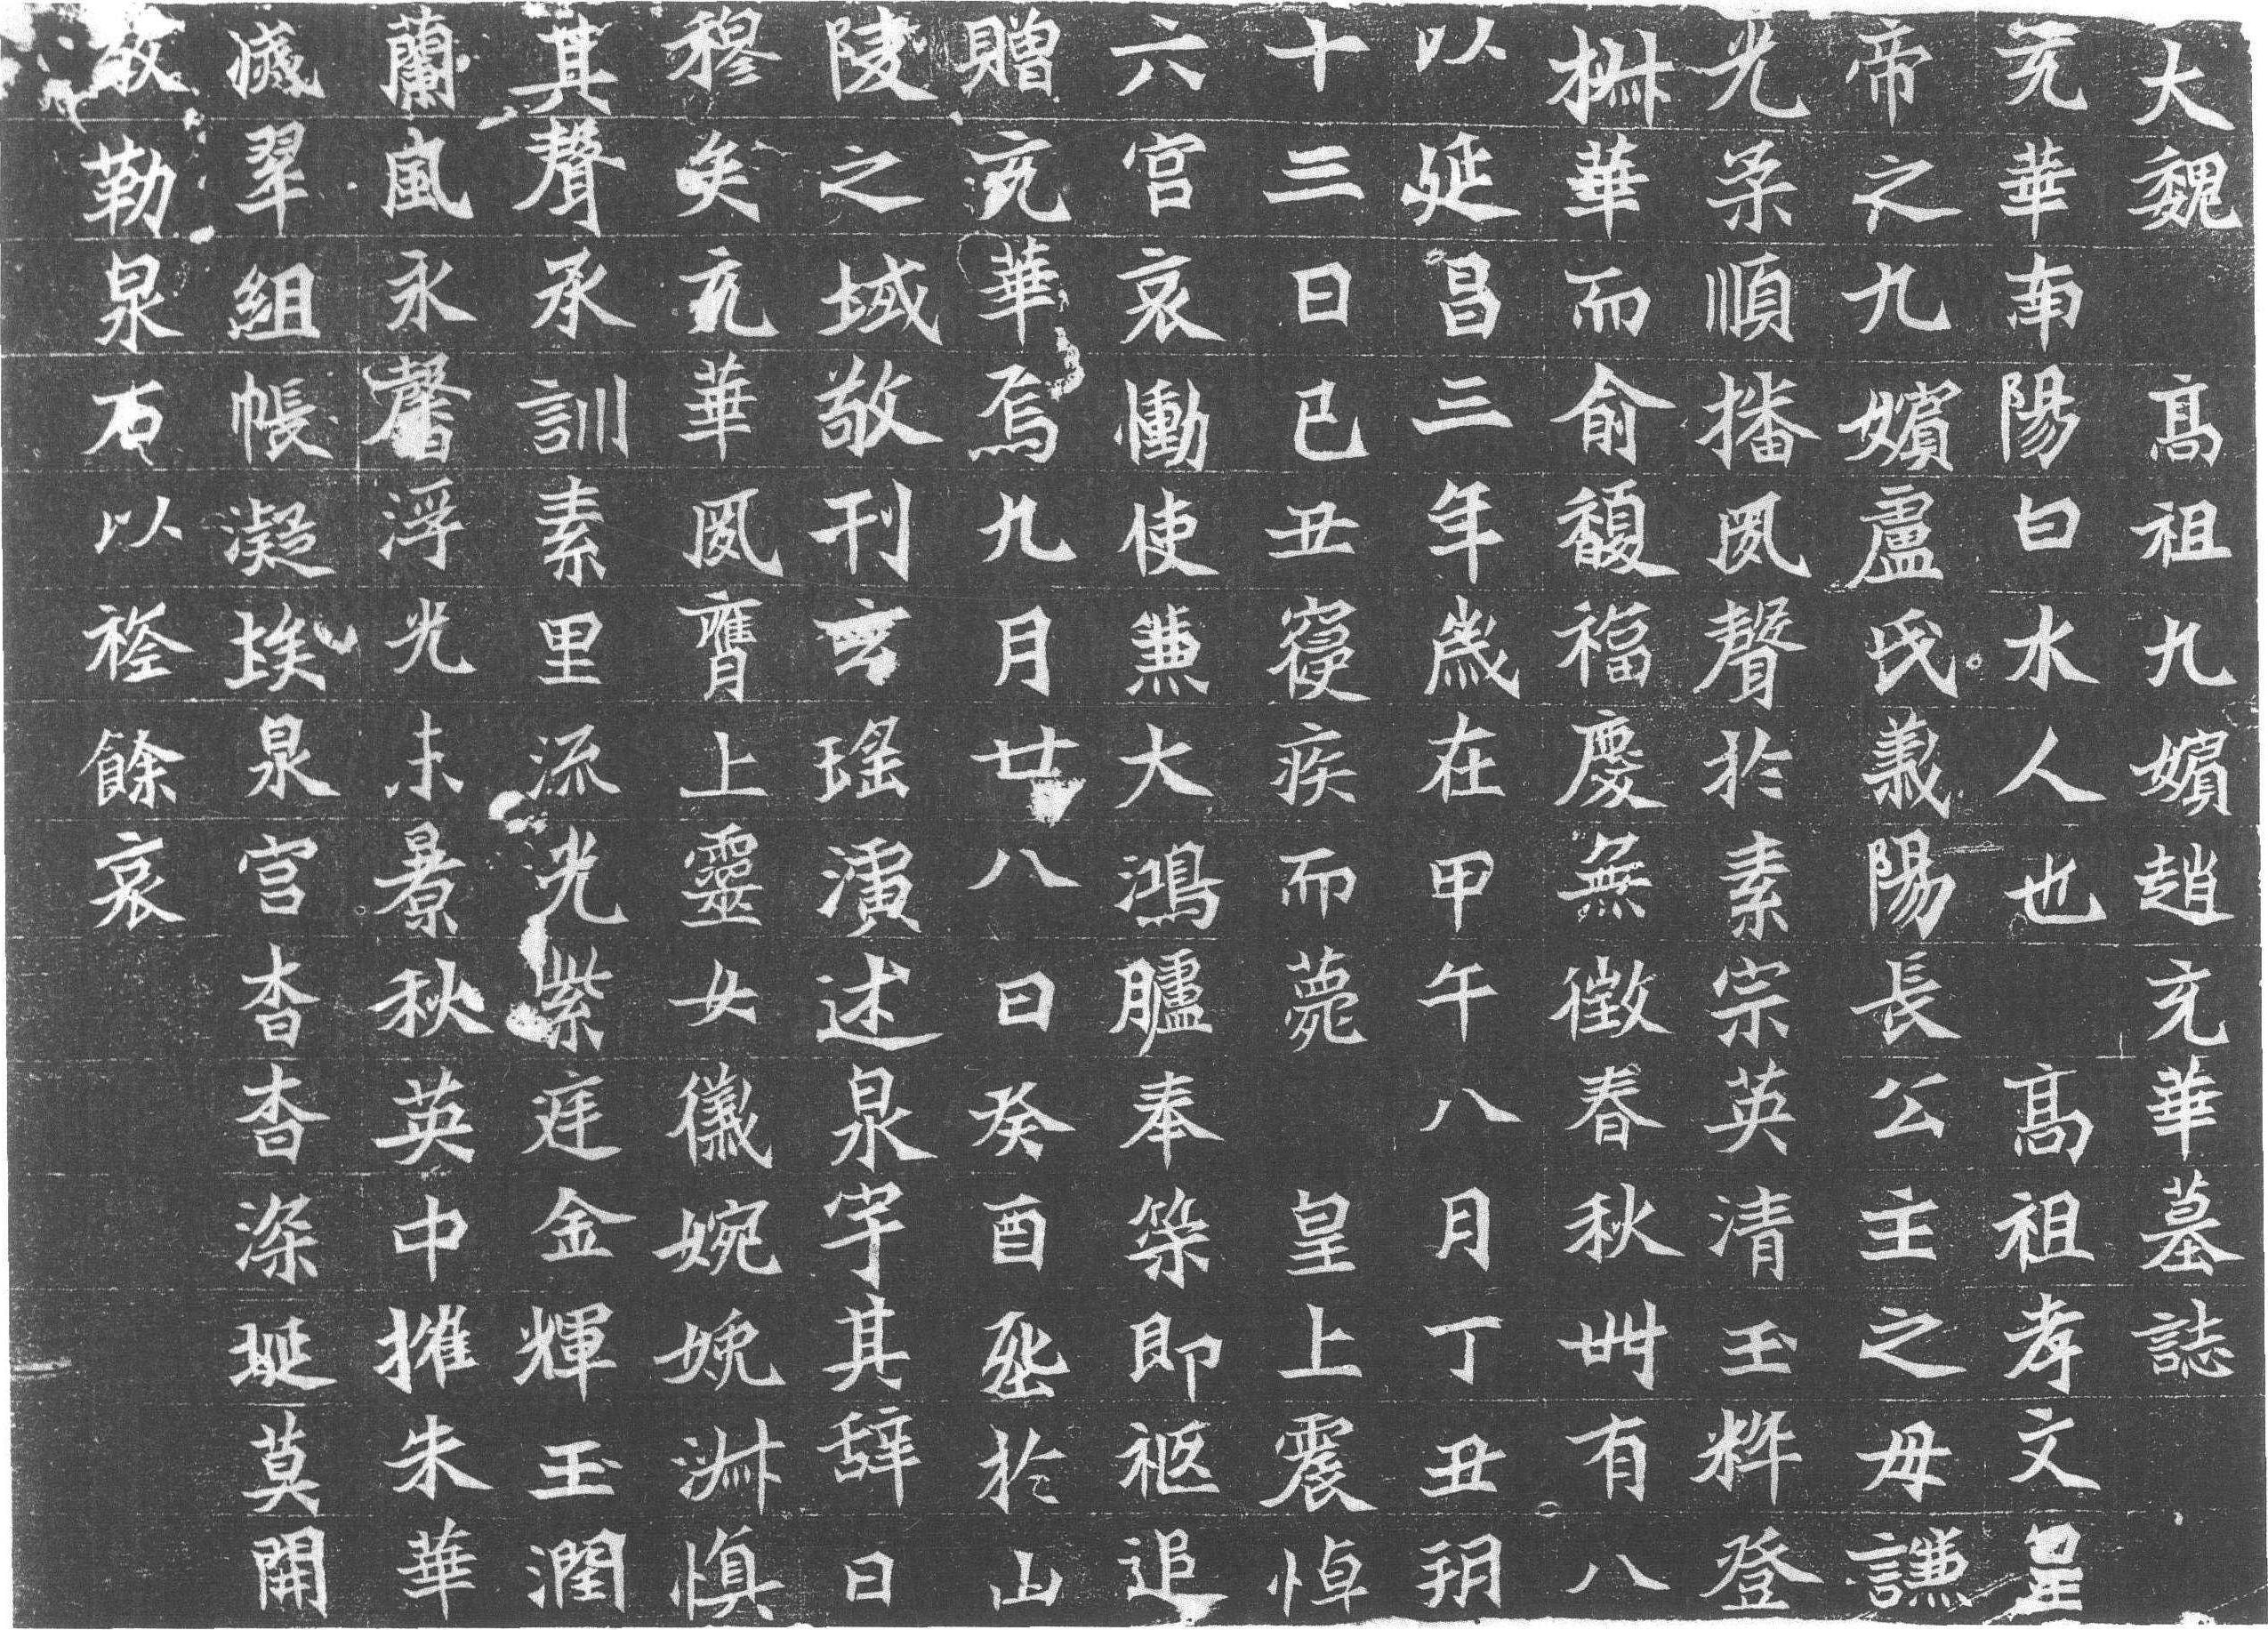 大魏高祖九嬪趙充華墓誌
充華南陽白水人也高祖孝文皇
帝之九嬪盧氏義陽長公主之母謙
光柔順播風聲於素宗英清玉粹登
椒華而俞馥福慶無徵春秋卌有八
以延昌三年歲在甲午八月丁丑朔
十三日已丑寢疾而薨皇上震悼
六宮哀慟使兼大鴻臚奉策即柩追
贈充華焉九月廿八日癸酉窆於山
陵之域敬刊玄瑤演述泉宇其辞曰
穆矣充華風膺上靈女徽婉娩淑慎
其聲承訓素里流光紫庭金輝玉潤
蘭風永馨浮光未景秋英中摧朱華
滅翠組帳凝埃泉宮杳杳深埏莫開
敬勒泉石以餘哀